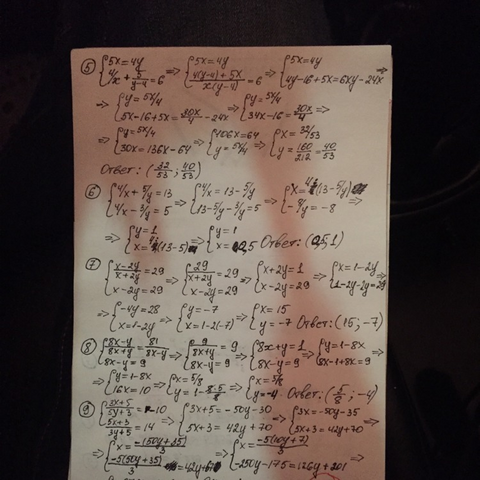 ⑤ {5x=4y
4/x + 5/(y-4) = 6 => {5x=4y
(4(y-4)+5x)/(x(y-4)) = 6 => {5x=4y
4y-16+5x=6xy-24x =>
=> {y=5x/4
5x-16+5x=30x/4-24x => {y=5x/4
34x-16=30x/4 =>
=> {y=5x/4
30x=136x-64 => {106x=64
y=5x/4 => {x=32/53
y=160/212=40/53
Ответ: (32/53; 40/53)
⑥ {4/x+5/y=13
4/x-3/y=5 => {4/x=13-5/y
13-5/y-3/y=5 => (13-5/y)
-8/y=-8
=> {y=1
(13-5) => {y=1
Ответ:
⑦ {(x-2y)/(x+2y)=29
x-2y=29 => {29/(x+2y)=29
x-2y=29 => {x+2y=1
x-2y=29 => {x=1-2y
1-2y-2y=29
=> {-4y=28
x=1-2y => {y=-7
x=1-2(-7) => {x=15
y=-7 Ответ: (15; -7)
⑧ {(8x-y)/(8x+y)=81/(8x-y)
8x-y=9 => {9/(8x+y)=9
8x-y=9 => {8x+y=1
8x-y=9 => {y=1-8x
8x-1+8x=9 =>
=> {y=1-8x
16x=10 => {x=5/8
y=1-8·5/8 => {x=5/8
y=-4 Ответ: (5/8; -4)
⑨ {(3x+5)/(5y+3)=-10
(5x+3)/(3y+5)=14 => {3x+5=-50y-30
5x+3=42y+70 => {3x=-50y-35
5x+3=42y+70 =>
=> {x=-(50y+35)/3
-5(50y+35)/3 => {x=-5(10y+7)/3
-250y-175=126y+201 =>